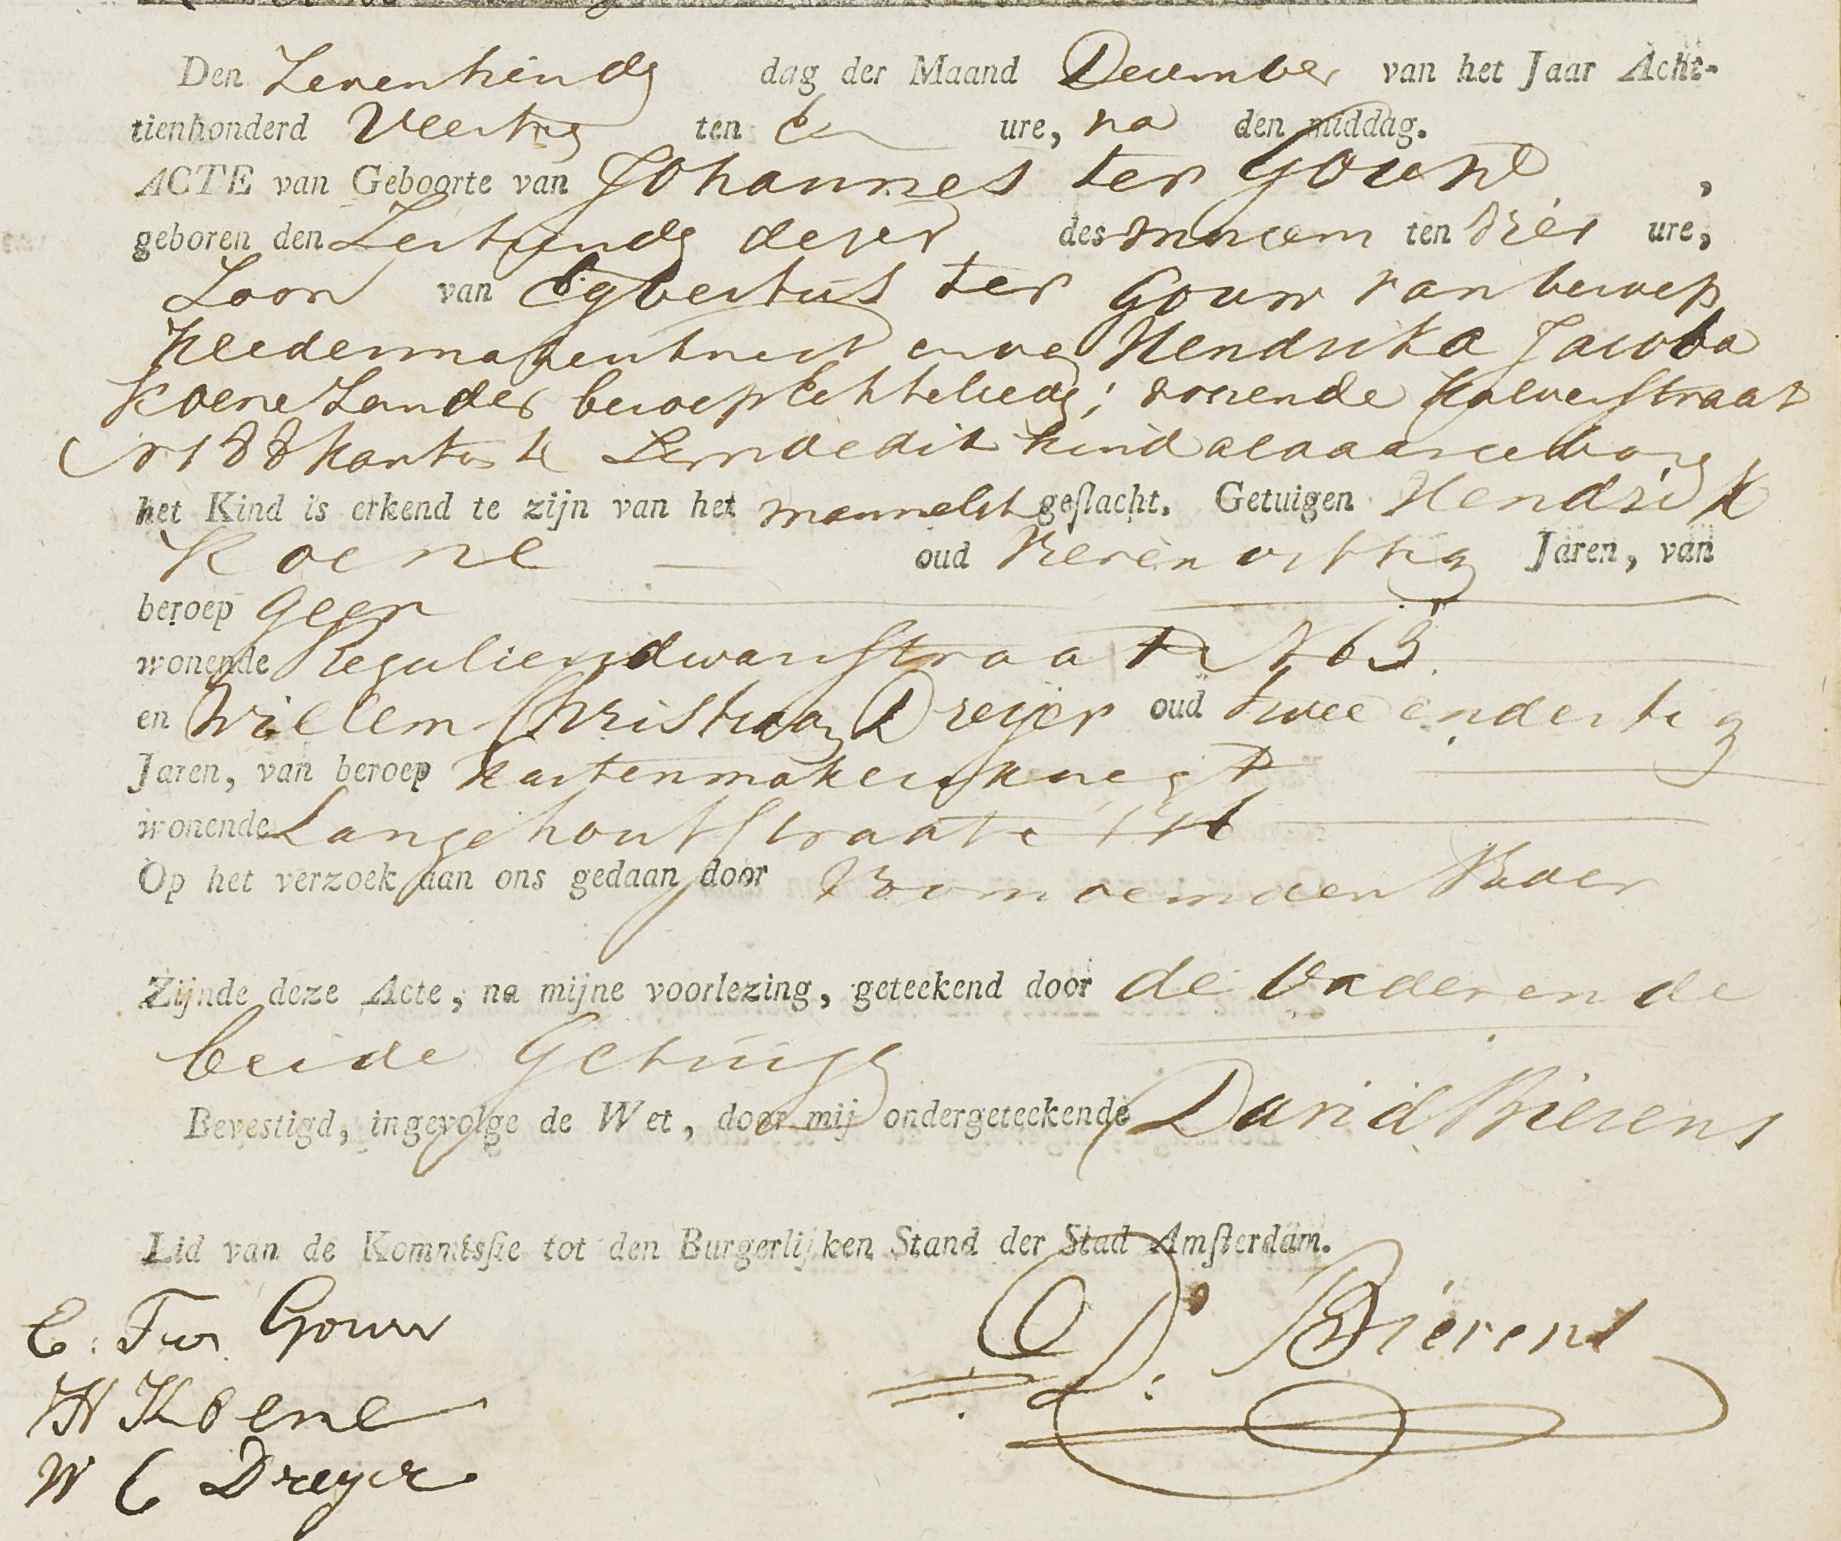 Den Zeventiende dag der Maand December van het Jaar Acht-
tienhonderd Veertig ten Een ure, na den middag.
ACTE van Geboorte van Johannes ter Gouw,
geboren den Zestiende dezer des morgens ten vier ure,
Zoon van Egbertus ter Gouw van beroep
kleedermakersknecht en van Hendrika Jacoba
Koene Zonder beroep Echtelieden; wonende Kalverstraat
N 188 Kanton 4 Zynde dit kind aldaar gebooren
het Kind is erkend te zijn van het mannelyk geſlacht. Getuigen Hendrik
Koene oud Zevenvyftig Jaren, van
beroep Geen
wonende Reguliersdwarsstraat N 63
en Willem Christiaan Dreijer oud twee en dertig
Jaren, van beroep kastenmakersknegt
wonende Langehoutstraat
Op het verzoek aan ons gedaan door Voornoemden Vader
Zijnde deze Acte, na mijne voorlezing, geteekend door de Vader en de
beide Getuige
Bevestigd, ingevolge de Wet, door mij ondergeteekende David Bierens
Lid van de Kommisſie tot den Burgerlijken Stand der Stad Amſterdam.
E. Ter Gouw D. Bierens
H Koene
W C Dreyer